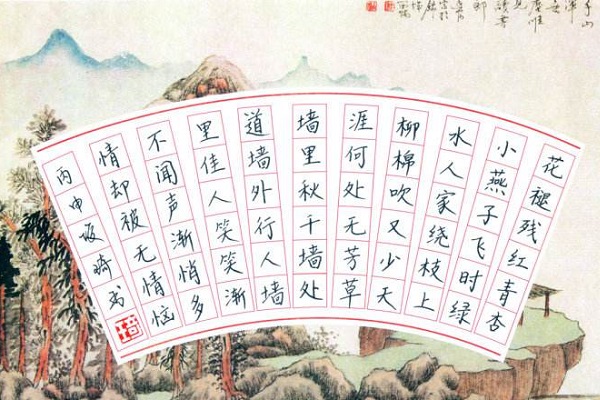 花褪残红青杏
小燕子飞时绿
水人家绕枝上
柳棉吹又少天
涯何处无芳草
墙里秋千墙处
道墙外行人墙
里佳人笑笑渐
不闻声渐悄多
情却被无情恼
丙申琦书